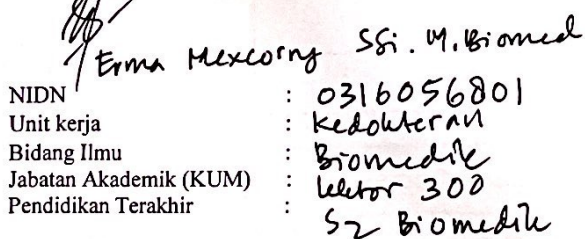 Erma Mexcorry SSi. M. Biomed
NIDN : 0316056801
Unit kerja : Kedokteran
Bidang Ilmu : Biomedik
Jabatan Akademik (KUM) : lektor 300
Pendidikan Terakhir : S2 Biomedik